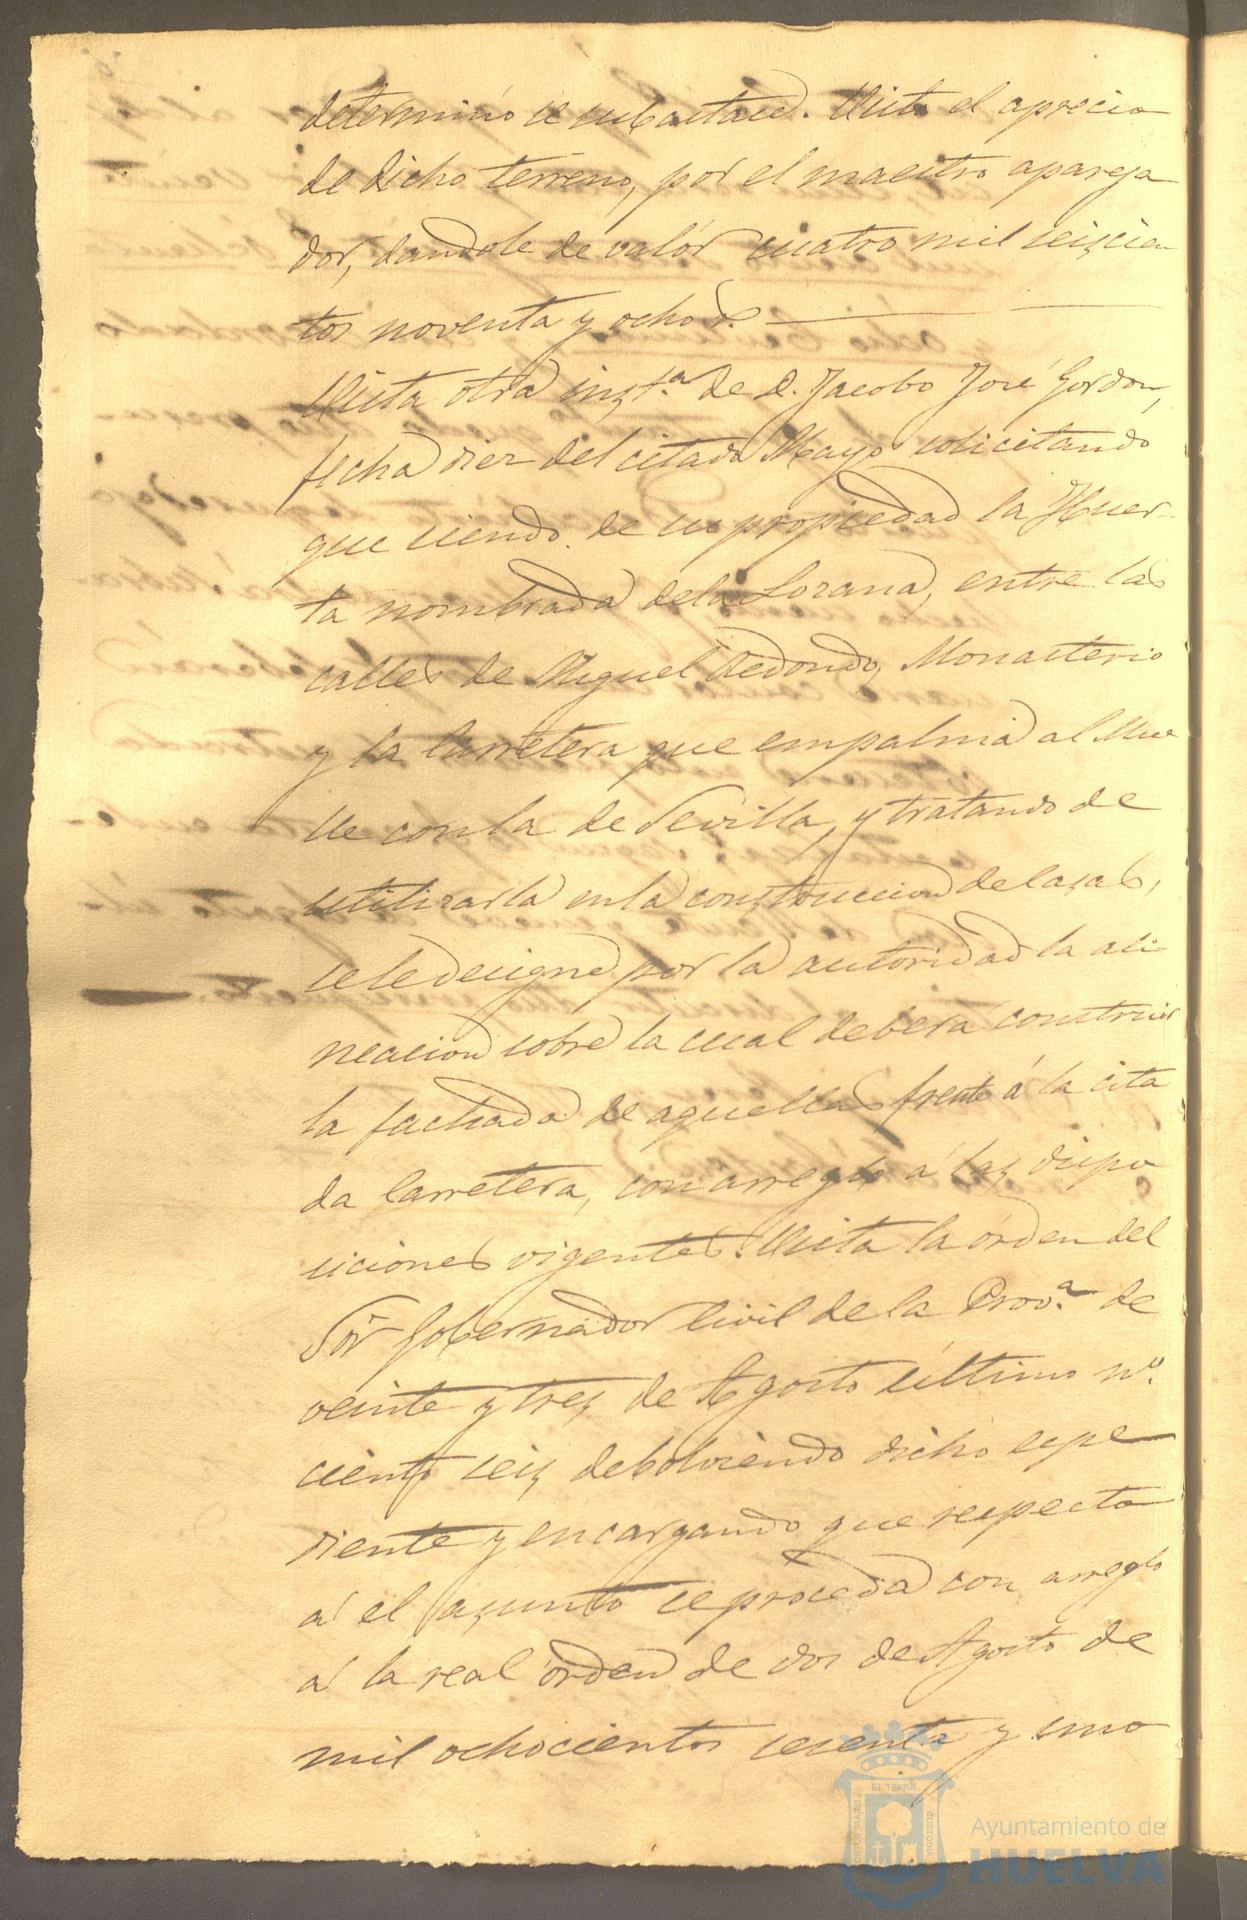 determinó se subastase. Vista el aprecio
de dicho terreno, por el maestro apareja
dor, dandole de valór cuatro mil seiscien
tos noventa y ocho rs.
Vista otra inst.ª de D. Jacobo José Gordon,
fecha diez del citado Mayo solicitando
que siendo de su propiedad la Huer-
ta nombrada de la Lozana, entre las
calles de Miguel Redondo, Monasterio
y la Carretera que empalma al Mue
lle con la de Sevilla, y tratando de
utilizarla en la construccion de casas,
se le designe por la autoridad la ali
neacion sobre la cual debera construir
la fachada de aquellas frente á la cita
da Carretera, con arreglo á las dispo
siciones vigentes. Vista la órden del
Sór Gobernador Civil de la Prov.ª de
veinte y tres de Agosto último nº.
ciento seis, debolviendo dicho espe
diente y encargando que respecto
á el asunto se proceda con arreglo
á la real órden de dos de Agosto de
mil ochocientos sesenta y uno
EL TERRÆ
CUSTODIA
Ayuntamiento de
HUELVA